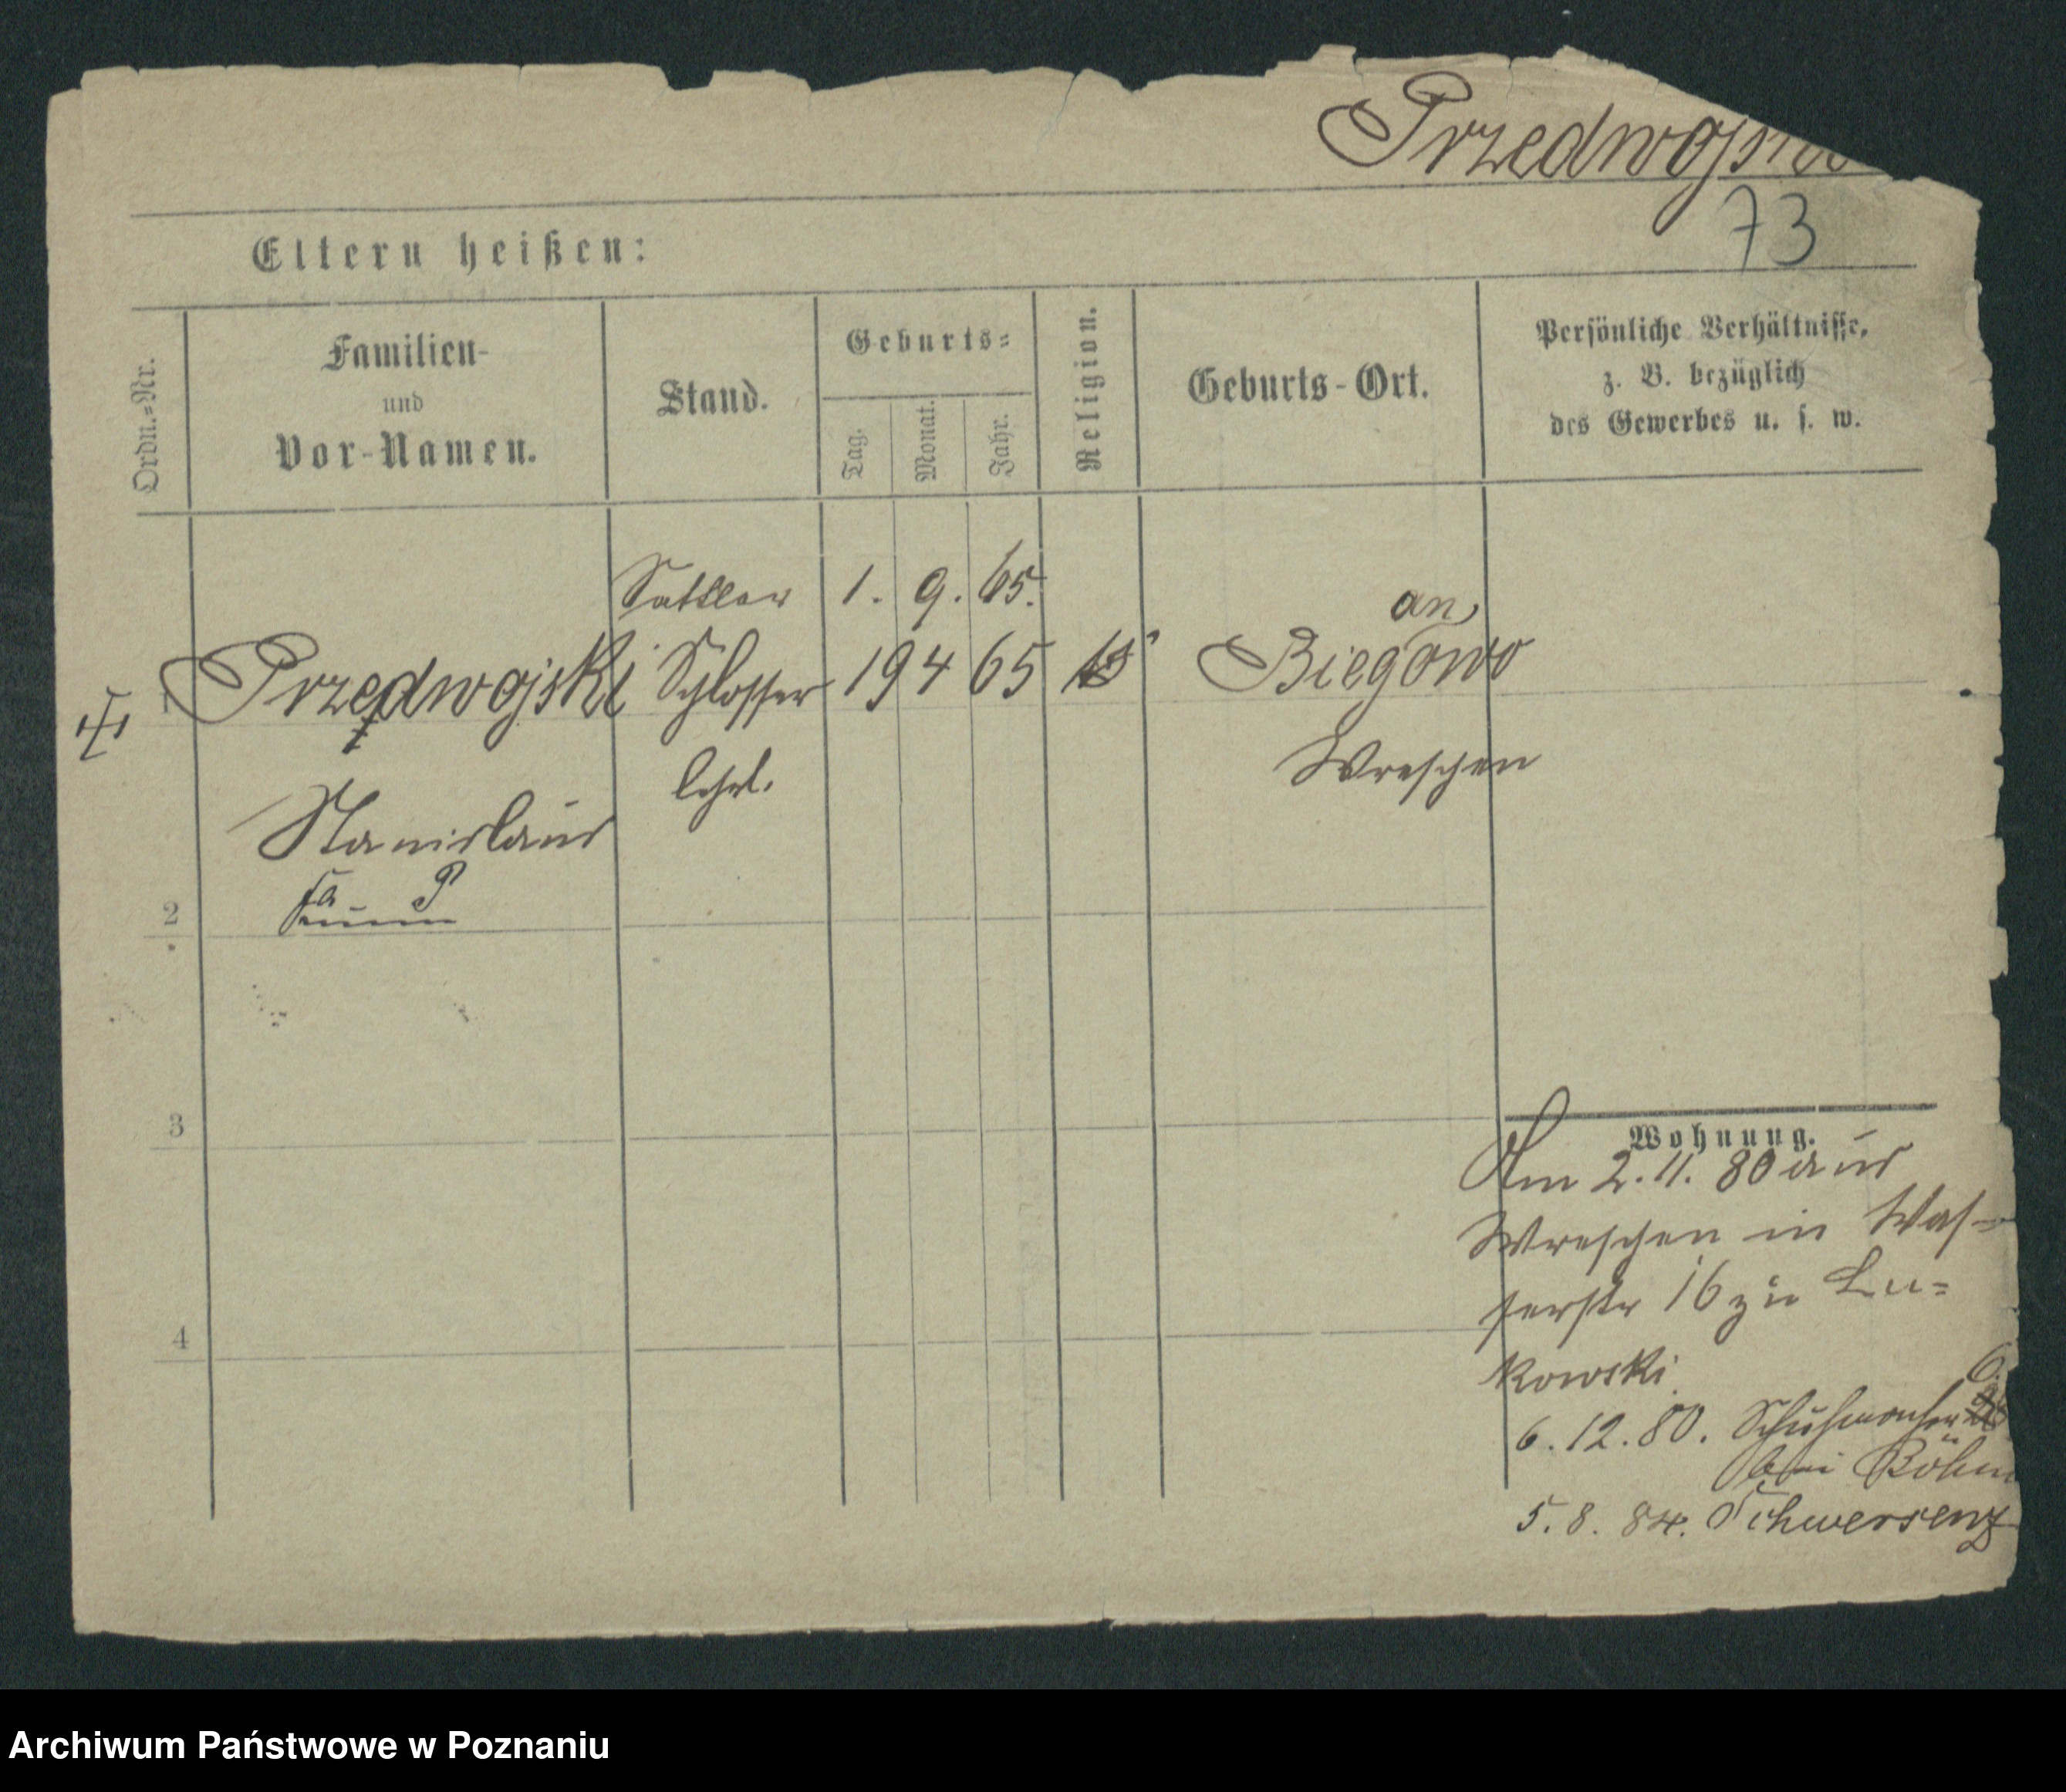 Przedwojski
73
Eltern heißen:
Ordn.=Nr.
Familien-
und
Vor-Namen.
Stand.
Geburts=
Tag.
Monat.
Jahr.
Religion.
Geburts-Ort.
Persönliche Verhältnisse,
z. B. bezüglich
des Gewerbes u. s. w.
Sattler 1. 9. 65.
an
1 Przedwojski Schlosser 19 4 65 Biegowo
lehrl. Wreschen
Stanislaus
2
3
4
Wohnung.
Am 2.11.80 aus
Wreschen in Was-
serstr 16 zu Lu=
kowski
6.12.80. Schuhmacher 6.
bei Böhm
5.8.84. Schwersenz
Archiwum Państwowe w Poznaniu